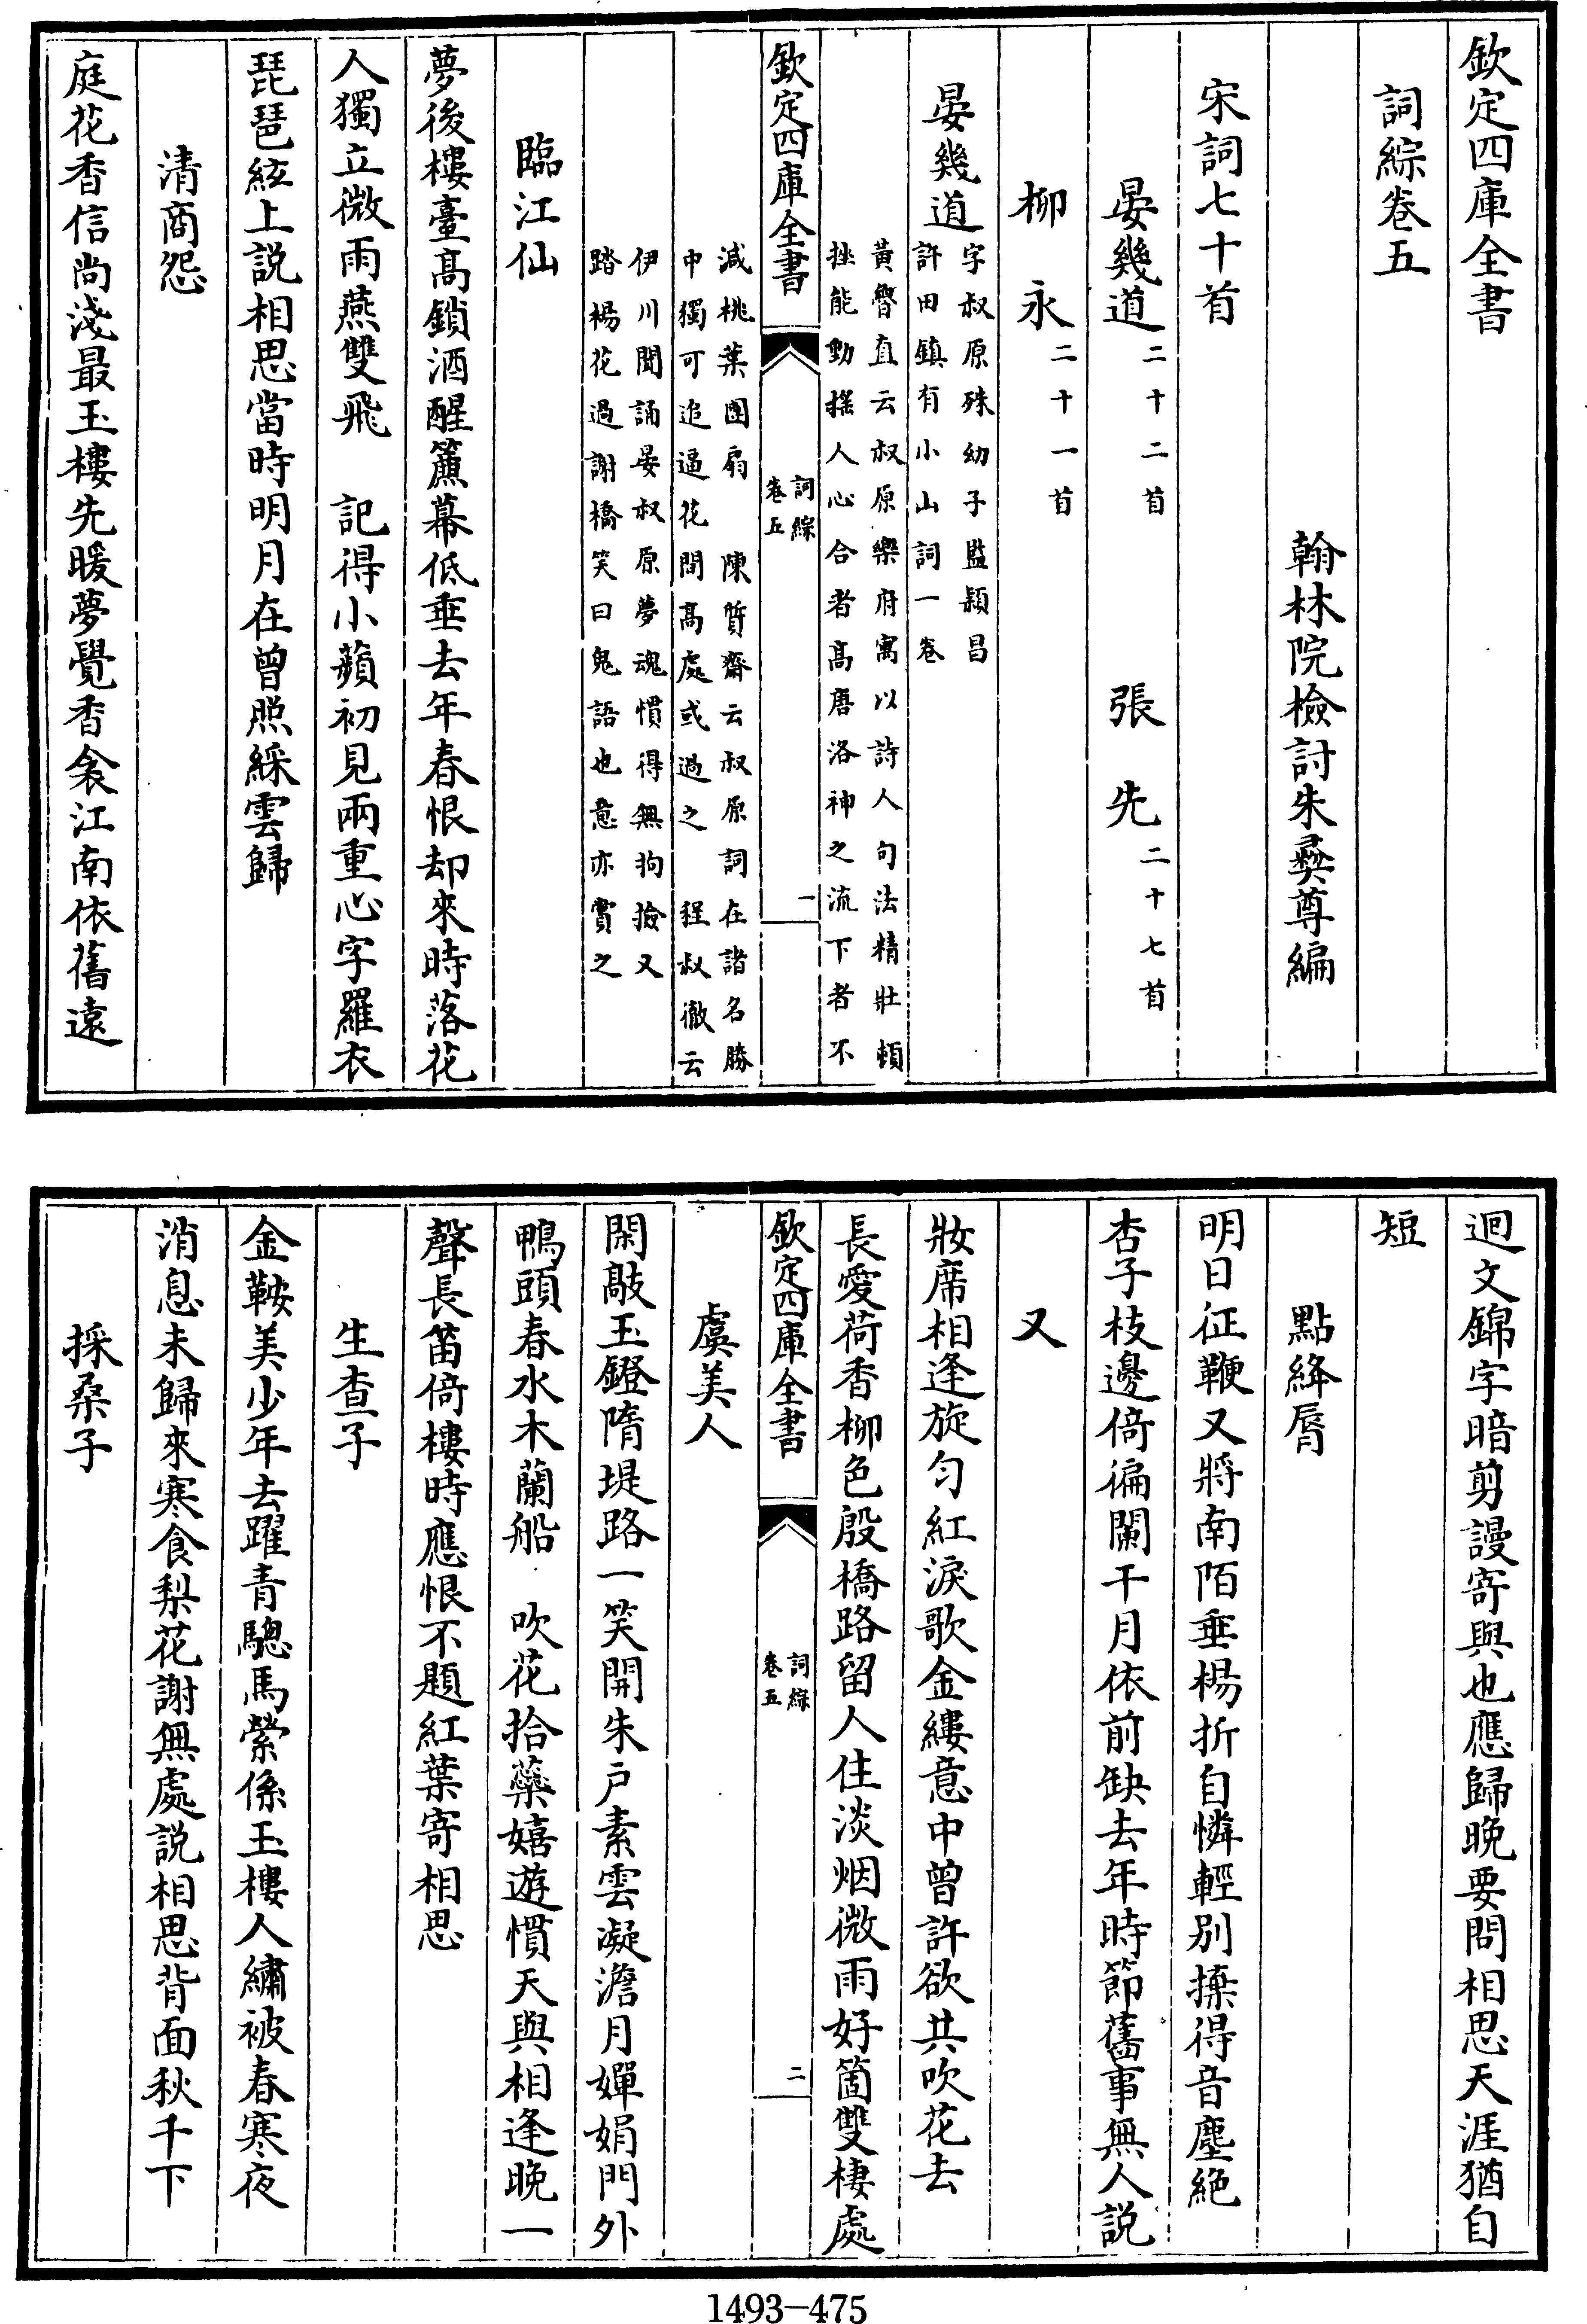 欽定四庫全書
詞綜卷五
翰林院檢討朱彞尊編
宋詞七十首
晏幾道二十二首 張先二十七首
柳永二十一首
晏幾道字叔原殊幼子監潁昌
許田鎮有小山詞一卷
黃魯直云叔原樂府寓以詩人句法精壯頓
挫能動揺人心合者高唐洛神之流下者不
欽定四庫全書
詞綜
卷五
一
減桃葉團扇 陳質齋云叔原詞在諸名勝
中獨可追逼花間高處或過之 程叔徹云
伊川聞誦晏叔原夢魂慣得無拘撿又
踏楊花過謝橋笑曰鬼語也意亦賞之
臨江仙
夢後樓臺高鎖酒醒簾幕低垂去年春恨却來時落花
人獨立微雨燕雙飛 記得小蘋初見兩重心字羅衣
琵琶絃上説相思當時明月在曾照綵雲歸
清商怨
庭花香信尚淺最玉樓先暖夢覺香衾江南依舊遠
迴文錦字暗剪謾寄與也應歸晚要問相思天涯猶自
短
點絳脣
明日征鞭又將南陌垂楊折自憐輕别㨿得音塵絶
杏子枝邊倚徧闌干月依前缺去年時節舊事無人説
又
妝席相逢旋匀紅淚歌金縷意中曾許欲共吹花去
長愛荷香柳色殷橋路留人住淡烟微雨好箇雙棲處
欽定四庫全書
詞綜
卷五
二
虞美人
閑敲玉鐙隋堤路一笑開朱户素雲凝澹月嬋娟門外
鴨頭春水木蘭船 吹花拾蘂嬉遊慣天與相逢晚一
聲長笛倚樓時應恨不題紅葉寄相思
生查子
金鞍美少年去躍青驄馬縈係玉樓人繡被春寒夜
消息未歸來寒食梨花謝無處説相思背面秋千下
採桑子
1493—475